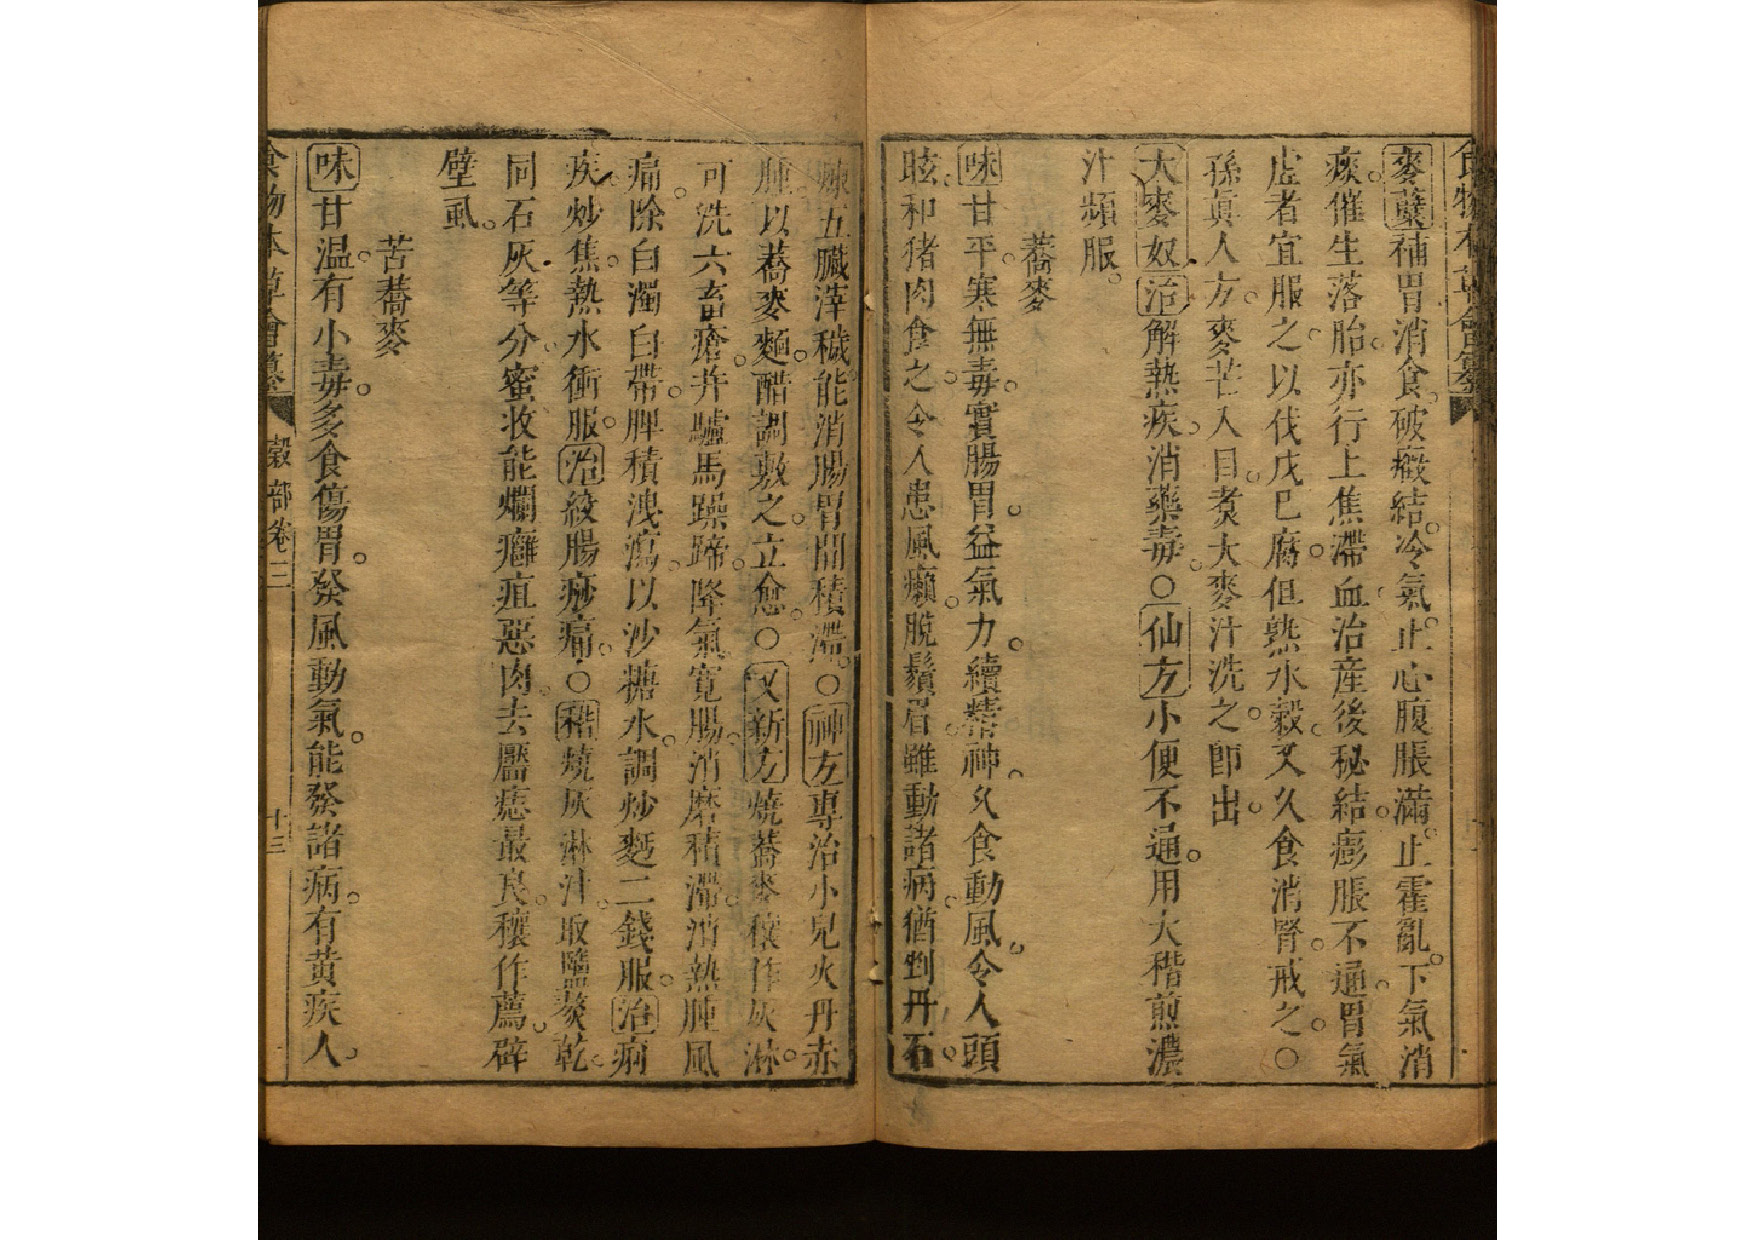 麥蘖補胃消食。破癥結。冷氣。止心腹脹滿。止霍亂。下氣消
痰。催生落胎。亦行上焦滯血治産後秘結。膨脹不通。胃氣
虛者宜服之。以伐戊己腐。但熟水穀。又久食消腎。戒之。○
孫眞人方。麥芒入目。煑大麥汁洗之。卽出。
大麥奴治解熱疾。消藥毒。○仙方小便不通。用大稭煎濃
汁頻服。
蕎麥
味甘平。寒無毒。實腸胃。益氣力。續精神。久食動風。令人頭
眩。和猪肉食之。令人患風癩。脫鬚眉。雖動諸病。猶剉丹石。
煉五臟滓穢。能消腸胃間積滯。○神方專治小兒火丹赤
腫。以蕎麥麵。醋調敷之。立愈。○又新方燒蕎麥穰作灰淋。
可洗六畜瘡。并驢馬躁蹄。降氣寬腸。消磨積滯。消熱腫風
痛。除白濁白帶。脾積洩瀉。以沙糖水。調炒麪二錢服。治痢
疾。炒焦。熱水衝服。治絞腸痧痛。○稭燒灰淋汁。取鹽熬乾。
同石灰等分。蜜收能爛癰疽惡肉。去靨痣最良。穰作薦。辟
壁虱。
苦蕎麥
味甘溫。有小毒。多食傷胃。發風動氣。能發諸病。有黃疾人。
食物本草會纂 穀部卷三 十三